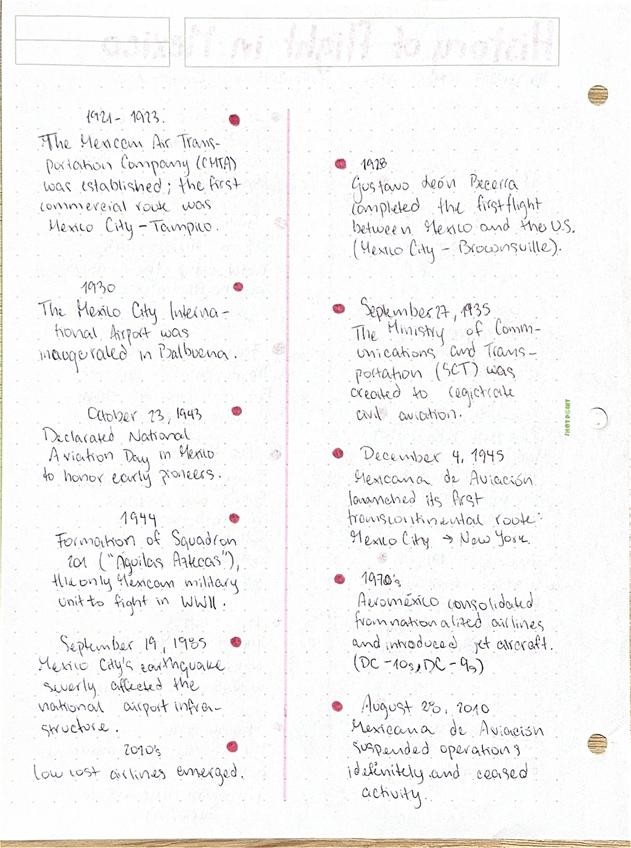 1921-1923.
The Mexican Air Trans-
portation Company (CMTA)
was established; the first
commercial route was
Mexico City - Tampico.
1930
The Mexico City Interna-
tional Airport was
inaugurated in Balbuena.
October 23, 1943
Declarated National
Aviation Day in Mexico
to honor early pioneers.
1944
Formation of Squadron
201 ("Aguilas Aztecas"),
the only Mexican military
unit to fight in WWII.
September 19, 1985
Mexico City's earthquake
severly affected the
national airport infra-
structure.
2010's
Low cost airlines emerged.
1928
Gustavo León Becerra
completed the first flight
between Mexico and the U.S.
(Mexico City - Brownsville).
September 27, 1935
The Ministry of Comm-
unications and Trans-
portation (SCT) was
created to registrate
civil aviation.
December 4, 1945
Mexicana de Aviación
launched its first
transcontinental route:
Mexico City → New York.
1970's
Aeroméxico consolidated
from nationalized airlines
and introduced jet aircraft.
(DC-10s, DC-9s)
August 28, 2010
Mexicana de Aviación
suspended operations
idefinitely and ceased
activity.